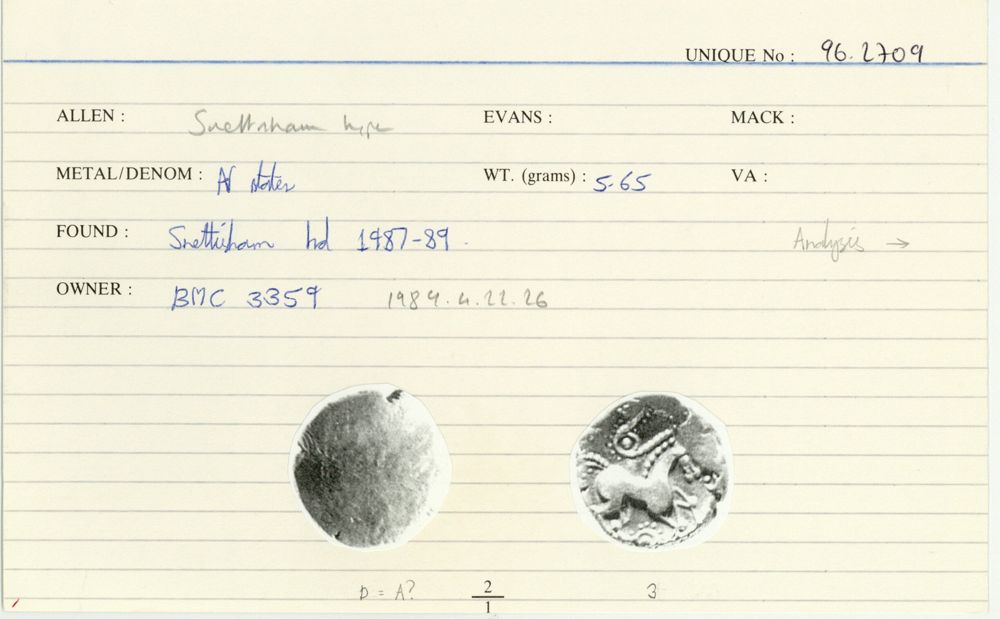 UNIQUE No : 96.2709
ALLEN : Snettisham type EVANS : MACK :
METAL/DENOM : AV stater WT. (grams) : 5.65 VA :
FOUND : Snettisham hd 1987-89. Analysis →
OWNER : BMC 3359 1989.4.22.26
D = A? 2/1 3